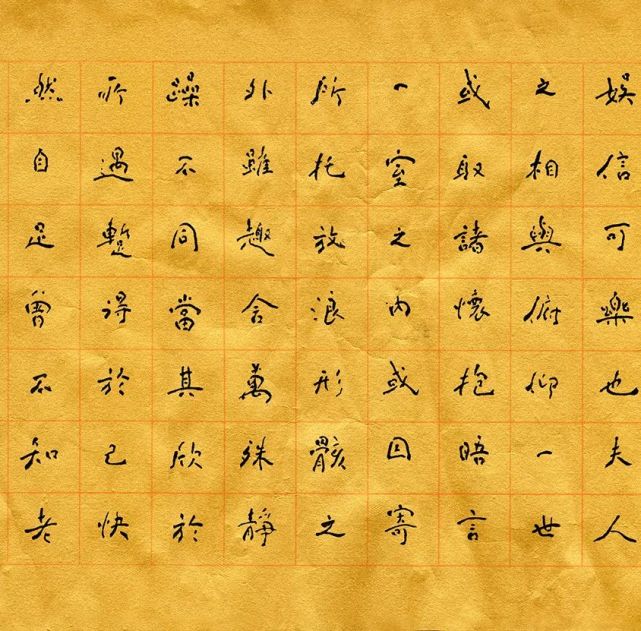 娛信可樂也夫人
之相與俯仰一世
或取諸懷抱晤言
一室之內或因寄
所托放浪形骸之
外雖趣舍萬殊靜
躁不同當其欣於
所遇蹔得於己快
然自足曾不知老